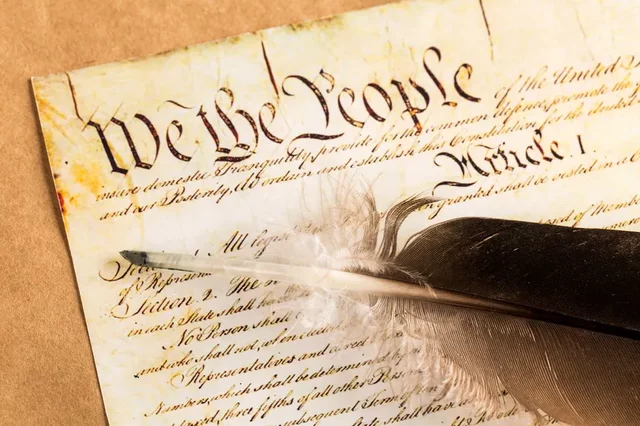 We the People of the United
insure domestic Tranquility, provide for the common defence, promote the
and our Posterity, do ordain and establish this Constitution for the United
Article. 1.
granted shall be vested in a
All legis
of Represen
Section. 2. The
in each State shall have
No Person shall
and who shall not, when elected
Representatives and direct
Numbers, which shall be determined by
three fifths of all other Persons.
subsequent Term of
State shall have